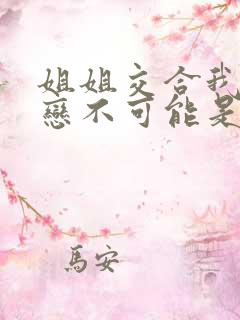 姐姐交合我
戀不可能是
馬安